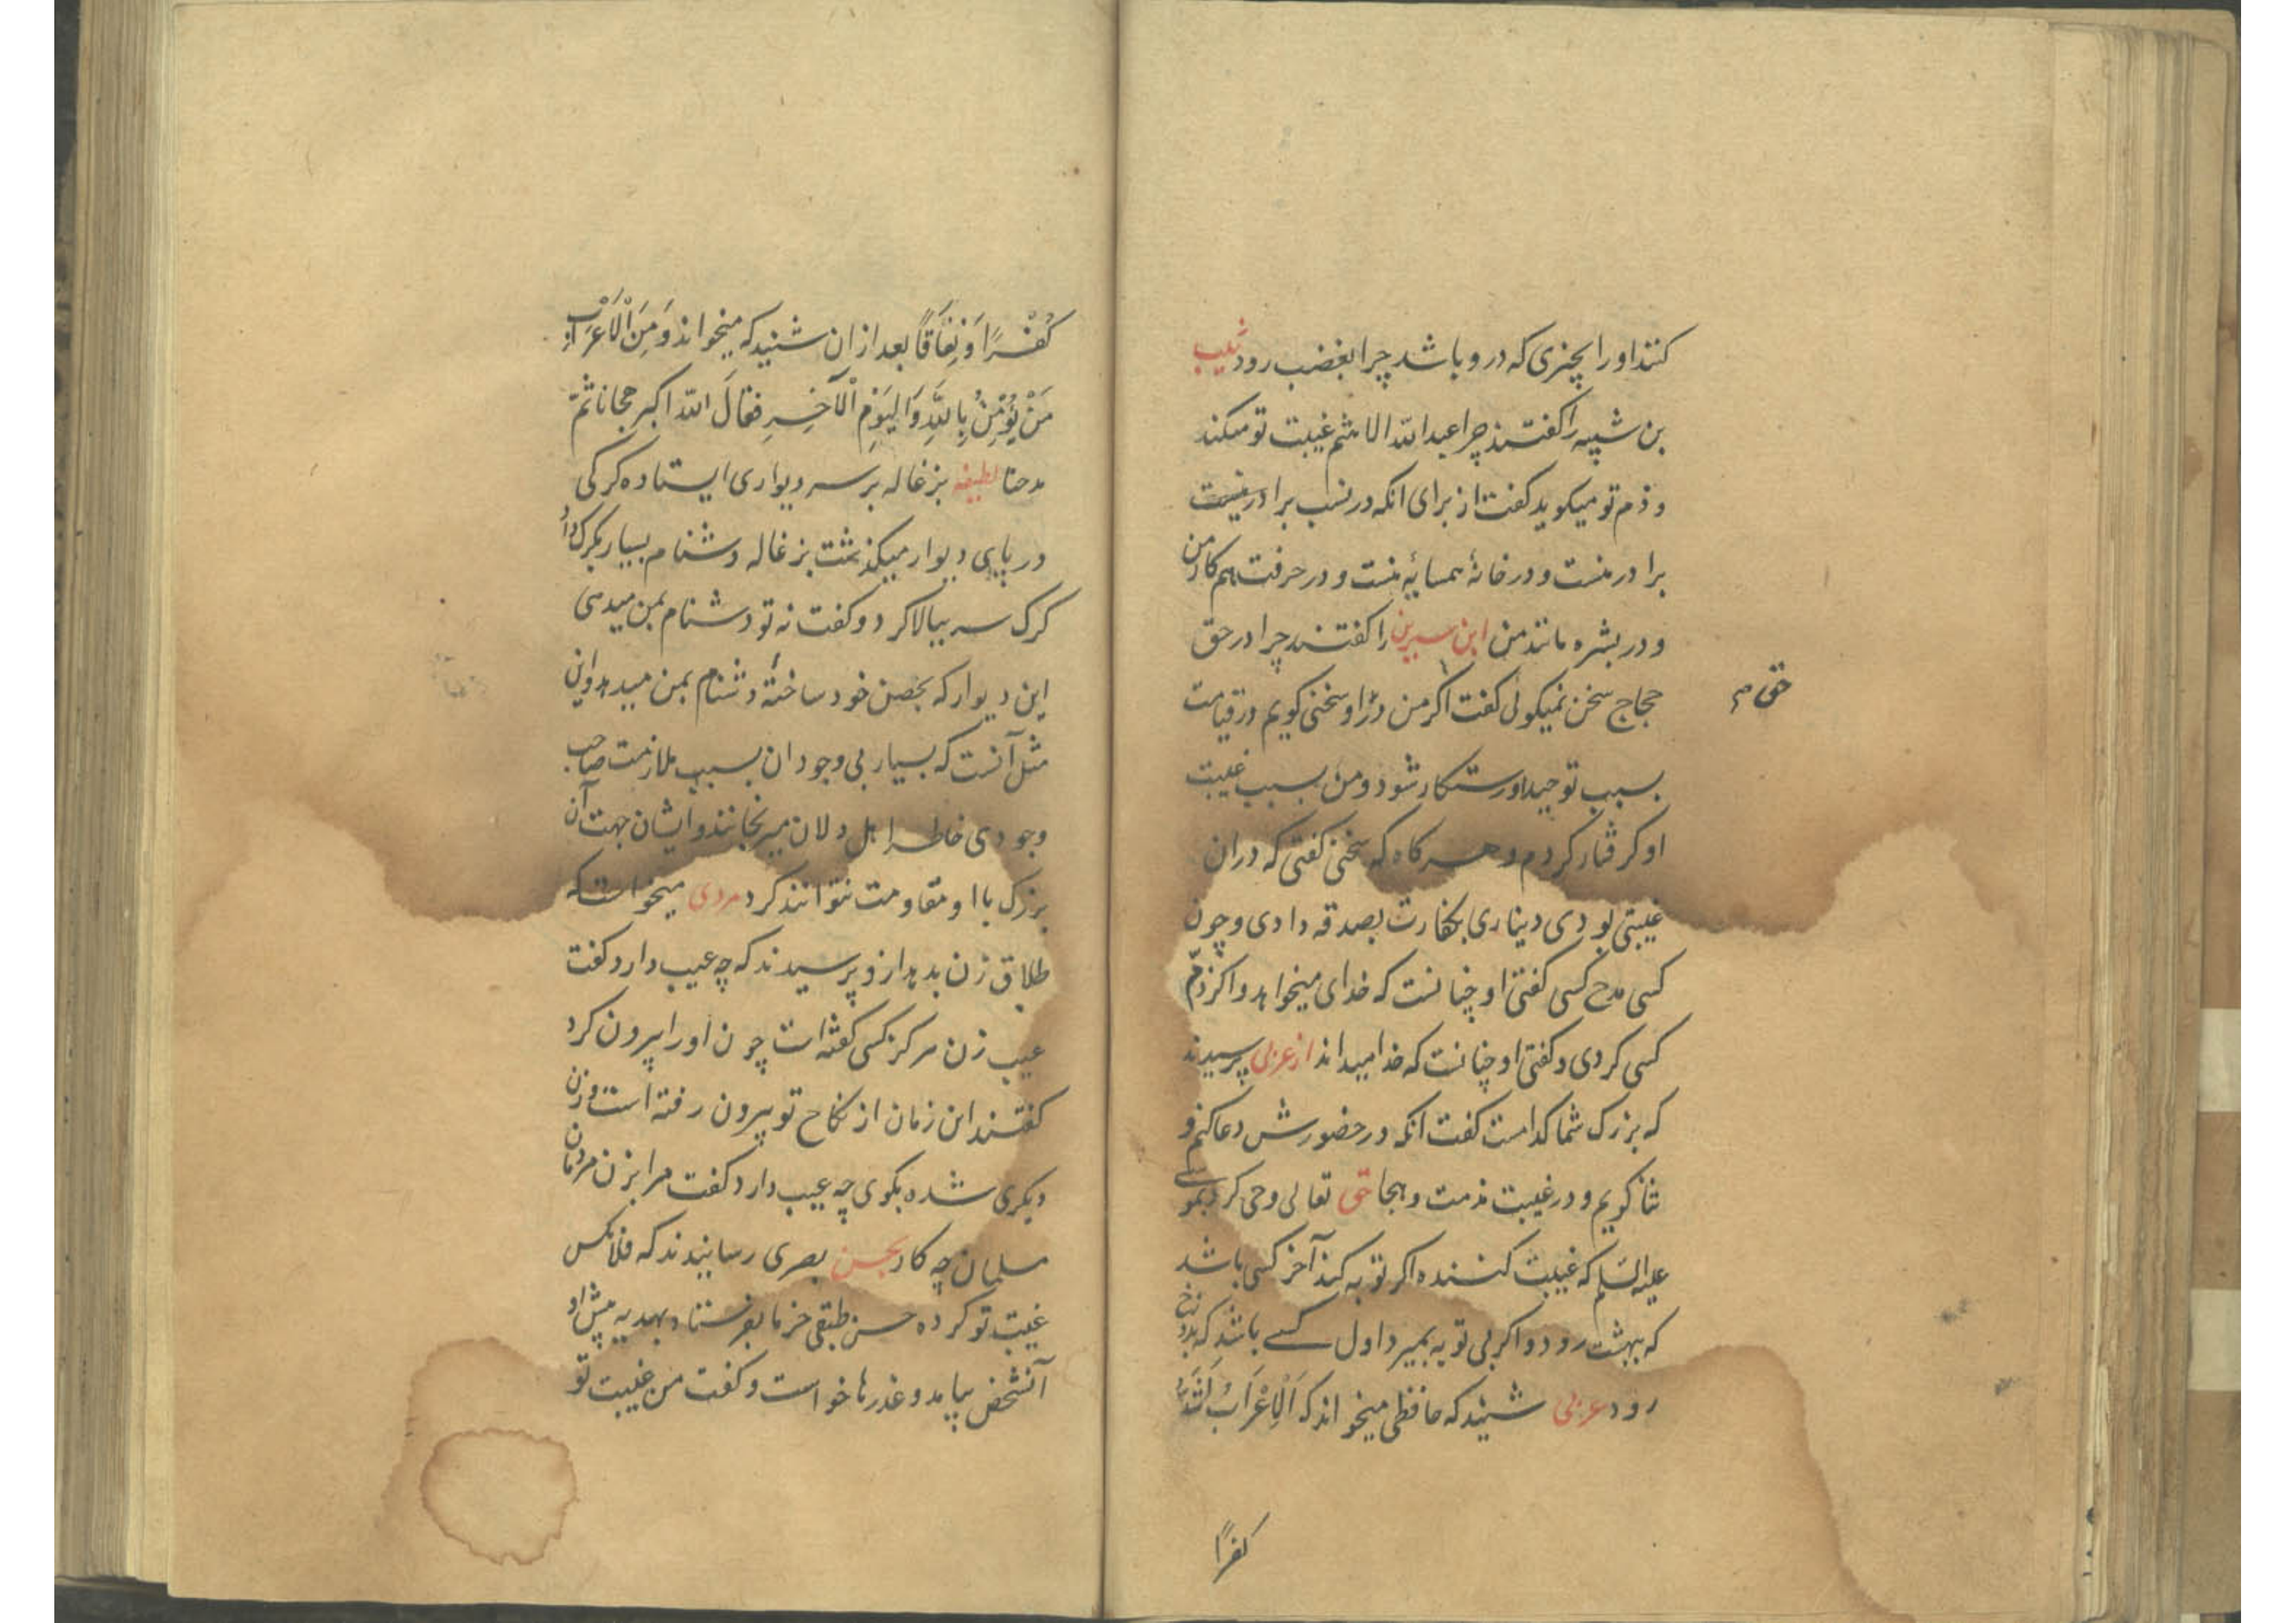 کنند او را بچیزی که درو باشد چرا بغضب رود شبیب
بن شیبه را کفتند چرا عبدالله الاهثم غیبت تو میکند
و ذم تو میکوید کفت از برای انکه در نسب برادر منست
برادر منست و در خانهٔ همسایهٔ منست و در حرفت هم کار من
و در بشره مانند من ابن سیرین را کفتند چرا در حق
حجاج سخن نمیکوئی کفت اکر من در او سخنی کویم در قیامت
حق م
بسبب توحید او رستکار شود و من بسبب غیبت
او کرفتار کردم و هر کاه که سخنی کفتی که دران
غیبتی بودی دیناری بکفارت بصدقه دادی و چون
کسی مدح کسی کفتی او چنانست که خدای میخواهد و اکر ذم
کسی کردی و کفتی او چنانست که خدا میداند از عربی پرسیدند
که بزرک شما کدامست کفت انکه در حضورش دعا کنم و
ثنا کویم و در غیبت مذمت و هجا حق تعالی وحی کرد بموسی
علیه السلم که غیبت کننده اکر توبه کند آخر کسی باشد
که ببهشت رود و اکر بی توبه بمیرد اول کسے باشد که بدوزخ
رود عربی شنید که حافظی میخواند که اَلْاَعْرَابُ اَشَدُّ
کفرًا
کُفْرًا وَ نِفَاقًا بعد ازان شنید که میخواند وَ مِنَ الْاَعْرَابِ
مَنْ یُؤْمِنُ بِاللّٰهِ وَ الیَوْمِ الْآخِرِ فقالَ الله اکبر هجانا ثمّ
مدحنا لطیفه بزغاله بر سر دیواری ایستاده کرکی
در پای دیوار میکذشت بزغاله دشنام بسیار بکرک داد
کرک سر ببالا کرد و کفت نه تو دشنام بمن میدهی
این دیوار که بحصن خود ساختهٔ دشنام بمن میدهد و این
مثل آنست که بسیار بی وجودان بسبب ملازمت صاحب
وجودی خاطر اهل دلان میرنجانند و ایشان جهت آن
بزرک با او مقاومت نتوانند کرد مردی میخواست که
طلاق زن بدهد ازو پرسیدند که چه عیب دارد کفت
عیب زن هرکز کسی کفته است چون او را بیرون کرد
کفتند این زمان از نکاح تو بیرون رفته است و زن
دیکری شده بکوی چه عیب دارد کفت مرا بزن مردمان
مسلمان چه کار بحسن بصری رسانیدند که فلانکس
غیبت تو کرده حسن طبقی خرما بفرستاد بهدیه پیش او
آنشخص بیامد و عذرها خواست و کفت من غیبت تو